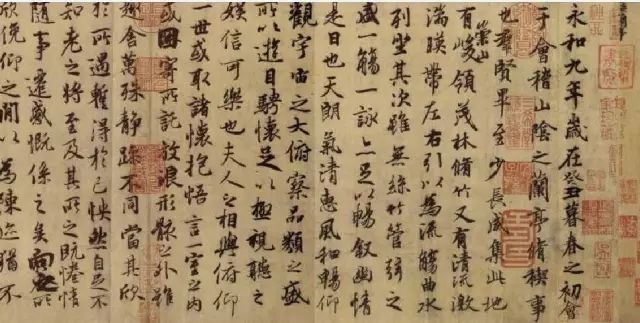 永和九年歲在癸丑暮春之初會
于會稽山陰之蘭亭脩稧事
也羣賢畢至少長咸集此地
有崇山峻領茂林脩竹又有清流激
湍暎帶左右引以為流觴曲水
列坐其次雖無絲竹管弦之
盛一觴一詠亦足以暢敘幽情
是日也天朗氣清惠風和暢仰
觀宇宙之大俯察品類之盛
所以遊目騁懷足以極視聽之
娛信可樂也夫人之相與俯仰
一世或取諸懷抱悟言一室之內
或因寄所託放浪形骸之外雖
趣舍萬殊靜躁不同當其欣
於所遇暫得於己怏然自足不
知老之將至及其所之既惓情
隨事遷感慨係之矣向之所
欣俛仰之閒以為陳迹猶不